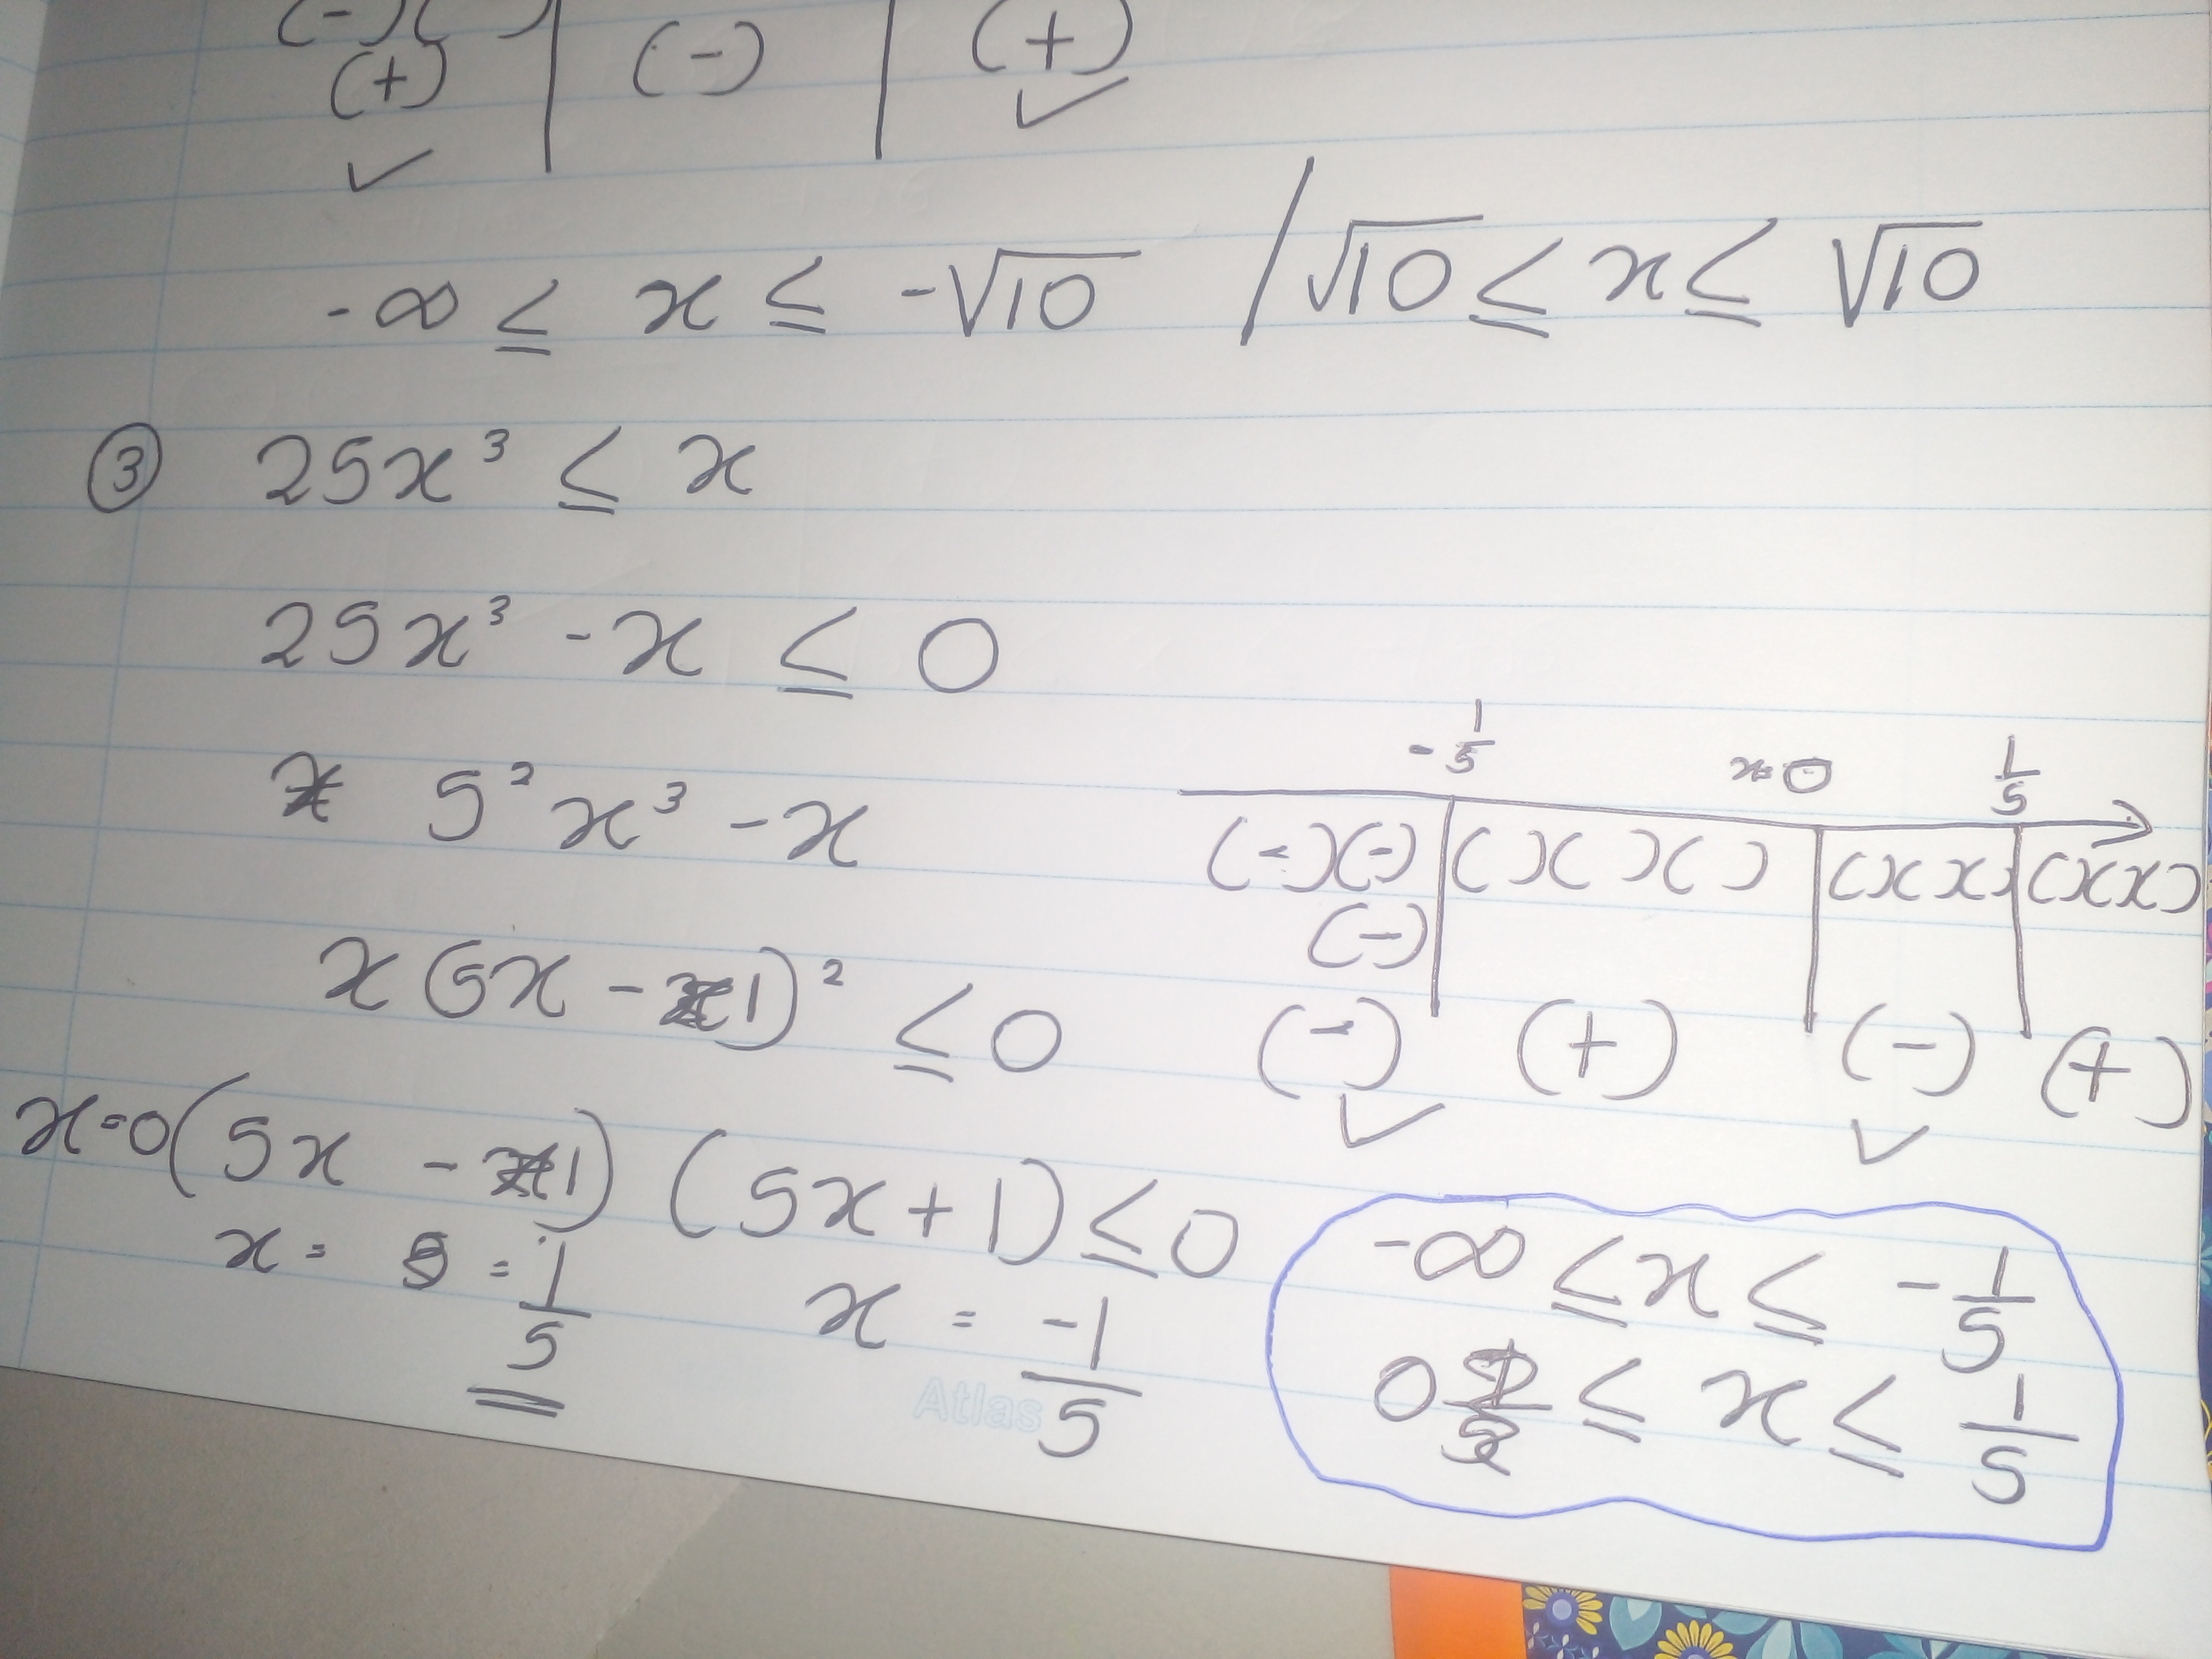 (-)( )
(+) (-) (+)
✓ ✓
-∞ ≤ x ≤ -√10 / √10 ≤ x ≤ √10
③ 25x³ ≤ x
25x³ - x ≤ 0
5²x³ - x
x(5x - 1)² ≤ 0
x=0(5x - 1)(5x+1) ≤ 0
x = = 1/5
x = -1/5
-1/5 x=0 1/5
(-)(-) ( )( )( ) ( )( ) ( )( )
(-)
(-) (+) (-) (+)
✓ ✓
-∞ ≤ x ≤ -1/5
0 ≤ x ≤ 1/5
Atlas